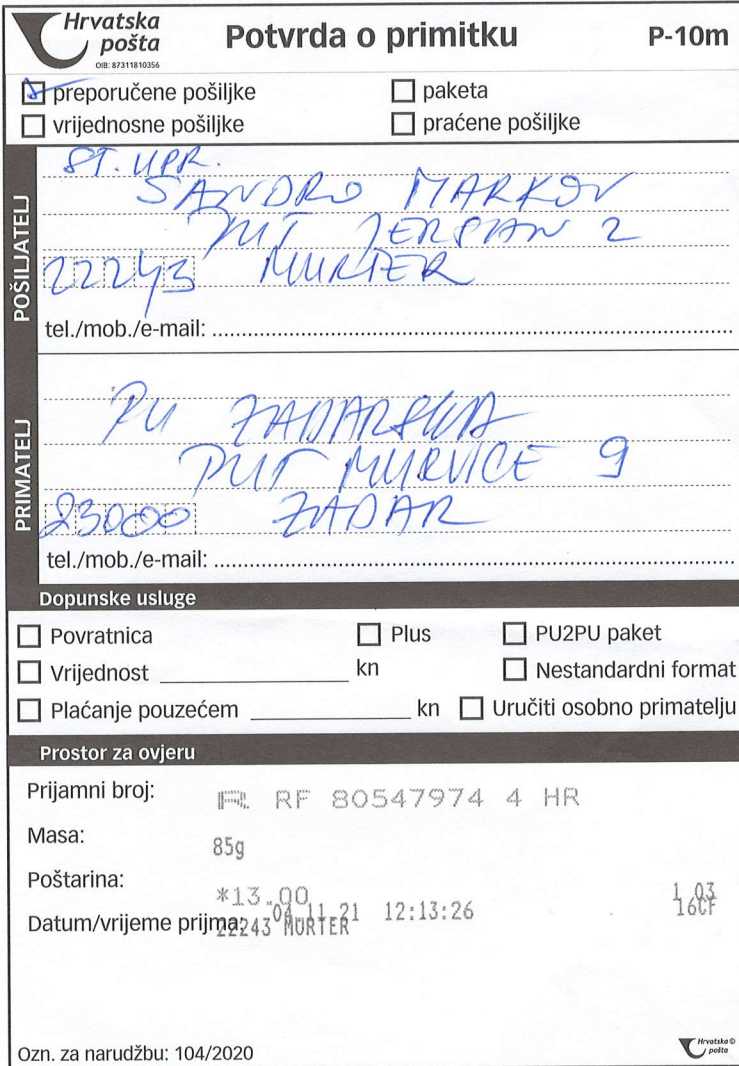 Hrvatska pošta
OIB: 87311810356
Potvrda o primitku
P-10m
preporučene pošiljke
paketa
vrijednosne pošiljke
praćene pošiljke
POŠILJATELJ
ST. UPR.
SANDRO MARKOV
PUT JERSAN 2
22243 MURTER
tel./mob./e-mail:
PRIMATELJ
PU ZADARSKA
PUT MURVICE 9
23000 ZADAR
tel./mob./e-mail:
Dopunske usluge
Povratnica
Plus
PU2PU paket
Vrijednost kn
Nestandardni format
Plaćanje pouzećem kn
Uručiti osobno primatelju
Prostor za ovjeru
Prijamni broj: R RF 80547974 4 HR
Masa: 85g
Poštarina: *13.00
1 03
Datum/vrijeme prijma: 04.11.21 12:13:26
16CF
22243 MURTER
Ozn. za narudžbu: 104/2020
Hrvatska pošta